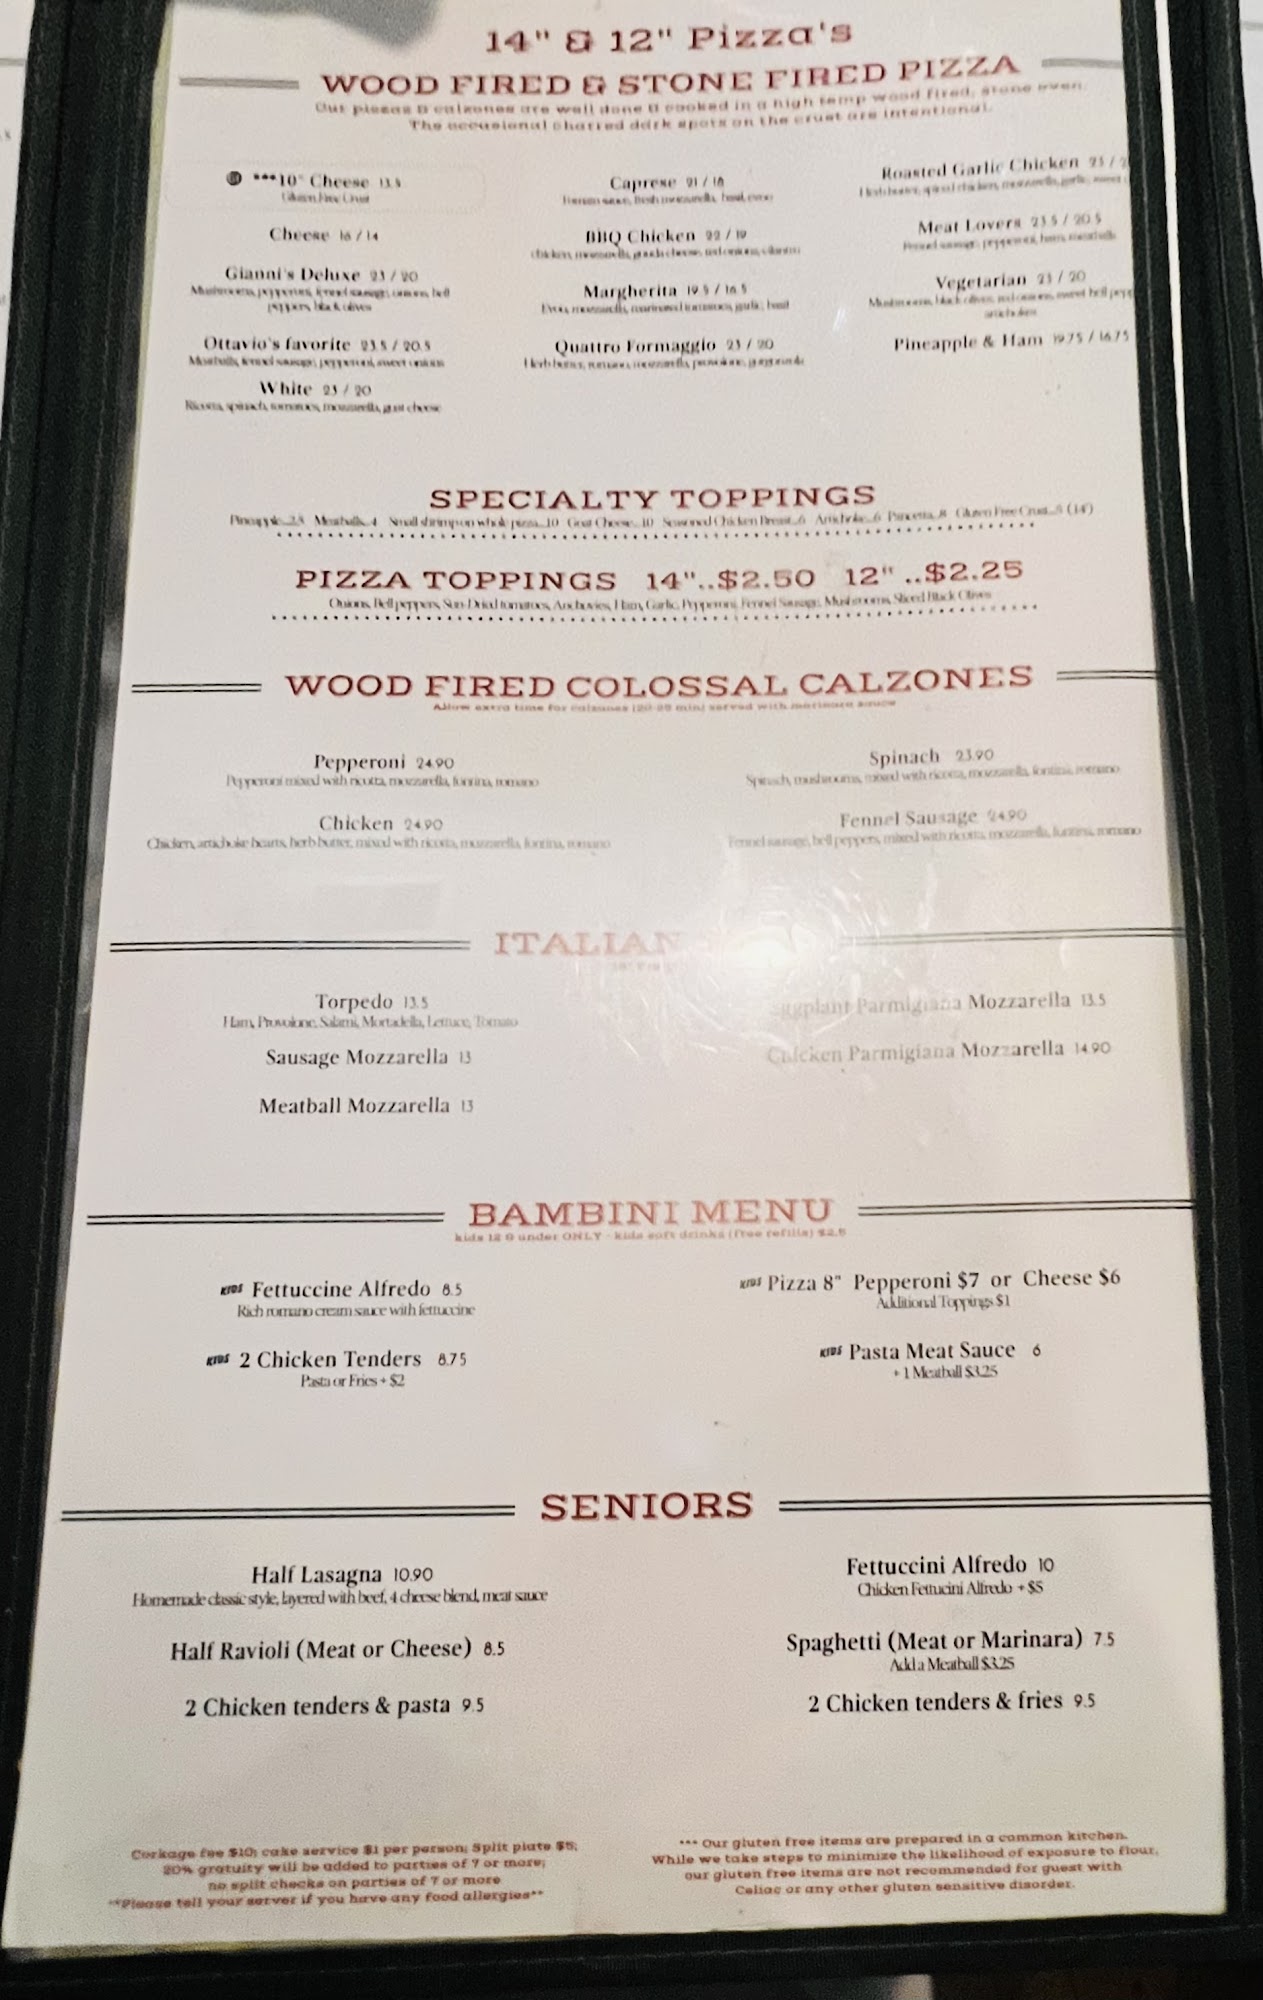 14" & 12" Pizza's
WOOD FIRED & STONE FIRED PIZZA
Our pizzas & calzones are well done & cooked in a high temp wood fired, stone oven.
The occasional charred dark spots on the crust are intentional.
***10" Cheese 13.5
Gluten Free Crust
Cheese 16 / 14
Gianni's Deluxe 23 / 20
Mushrooms, pepperoni, fennel sausage, onions, bell
peppers, black olives
Ottavio's favorite 23.5 / 20.5
Meatballs, fennel sausage, pepperoni, sweet onions
White 23 / 20
Ricotta, spinach, tomatoes, mozzarella, goat cheese
Caprese 21 / 18
Tomato sauce, fresh mozzarella, basil, evoo
BBQ Chicken 22 / 19
chicken, mozzarella, gouda cheese, red onions, cilantro
Margherita 19.5 / 16.5
Evoo, mozzarella, marinated tomatoes, garlic, basil
Quattro Formaggio 23 / 20
Herb butter, romano, mozzarella, provolone, gorgonzola
Roasted Garlic Chicken 23 /
Herb butter, spiced chicken, mozzarella, garlic, sweet
Meat Lovers 23.5 / 20.5
Fennel sausage, pepperoni, ham, meatballs
Vegetarian 23 / 20
Mushrooms, black olives, red onions, sweet bell
artichokes
Pineapple & Ham 19.75 / 16.75
SPECIALTY TOPPINGS
Pineapple...2.5 Meatballs...4 Small shrimp on whole pizza...10 Goat Cheese...10 Seasoned Chicken Breast...6 Artichoke...6 Pancetta...8 Gluten Free Crust...5 (14")
PIZZA TOPPINGS 14"..$2.50 12" ..$2.25
Onions, Bell peppers, Sun-Dried tomatoes, Anchovies, Ham, Garlic, Pepperoni, Fennel Sausage, Mushrooms, Sliced Black Olives
WOOD FIRED COLOSSAL CALZONES
Allow extra time for calzones (20-25 min) served with marinara sauce
Pepperoni 24.90
Pepperoni mixed with ricotta, mozzarella, fontina, romano
Chicken 24.90
Chicken, artichoke hearts, herb butter, mixed with ricotta, mozzarella, fontina, romano
Spinach 23.90
Spinach, mushrooms, mixed with ricotta, mozzarella, fontina, romano
Fennel Sausage 24.90
Fennel sausage, bell peppers, mixed with ricotta, mozzarella, fontina, romano
ITALIAN
Torpedo 13.5
Ham, Provolone, Salami, Mortadella, Lettuce, Tomato
Sausage Mozzarella 13
Meatball Mozzarella 13
Eggplant Parmigiana Mozzarella 13.5
Chicken Parmigiana Mozzarella 14.90
BAMBINI MENU
kids 12 & under ONLY - kids soft drinks (free refills) $2.5
KIDS Fettuccine Alfredo 8.5
Rich romano cream sauce with fettuccine
KIDS 2 Chicken Tenders 8.75
Pasta or Fries + $2
KIDS Pizza 8" Pepperoni $7 or Cheese $6
Additional Toppings $1
KIDS Pasta Meat Sauce 6
+ 1 Meatball $3.25
SENIORS
Half Lasagna 10.90
Homemade classic style, layered with beef, 4 cheese blend, meat sauce
Half Ravioli (Meat or Cheese) 8.5
2 Chicken tenders & pasta 9.5
Fettuccini Alfredo 10
Chicken Fettucini Alfredo + $5
Spaghetti (Meat or Marinara) 7.5
Add a Meatball $3.25
2 Chicken tenders & fries 9.5
Corkage fee $10; cake service $1 per person; Split plate $5;
20% gratuity will be added to parties of 7 or more;
no split checks on parties of 7 or more
**Please tell your server if you have any food allergies**
*** Our gluten free items are prepared in a common kitchen.
While we take steps to minimize the likelihood of exposure to flour,
our gluten free items are not recommended for guest with
Celiac or any other gluten sensitive disorder.